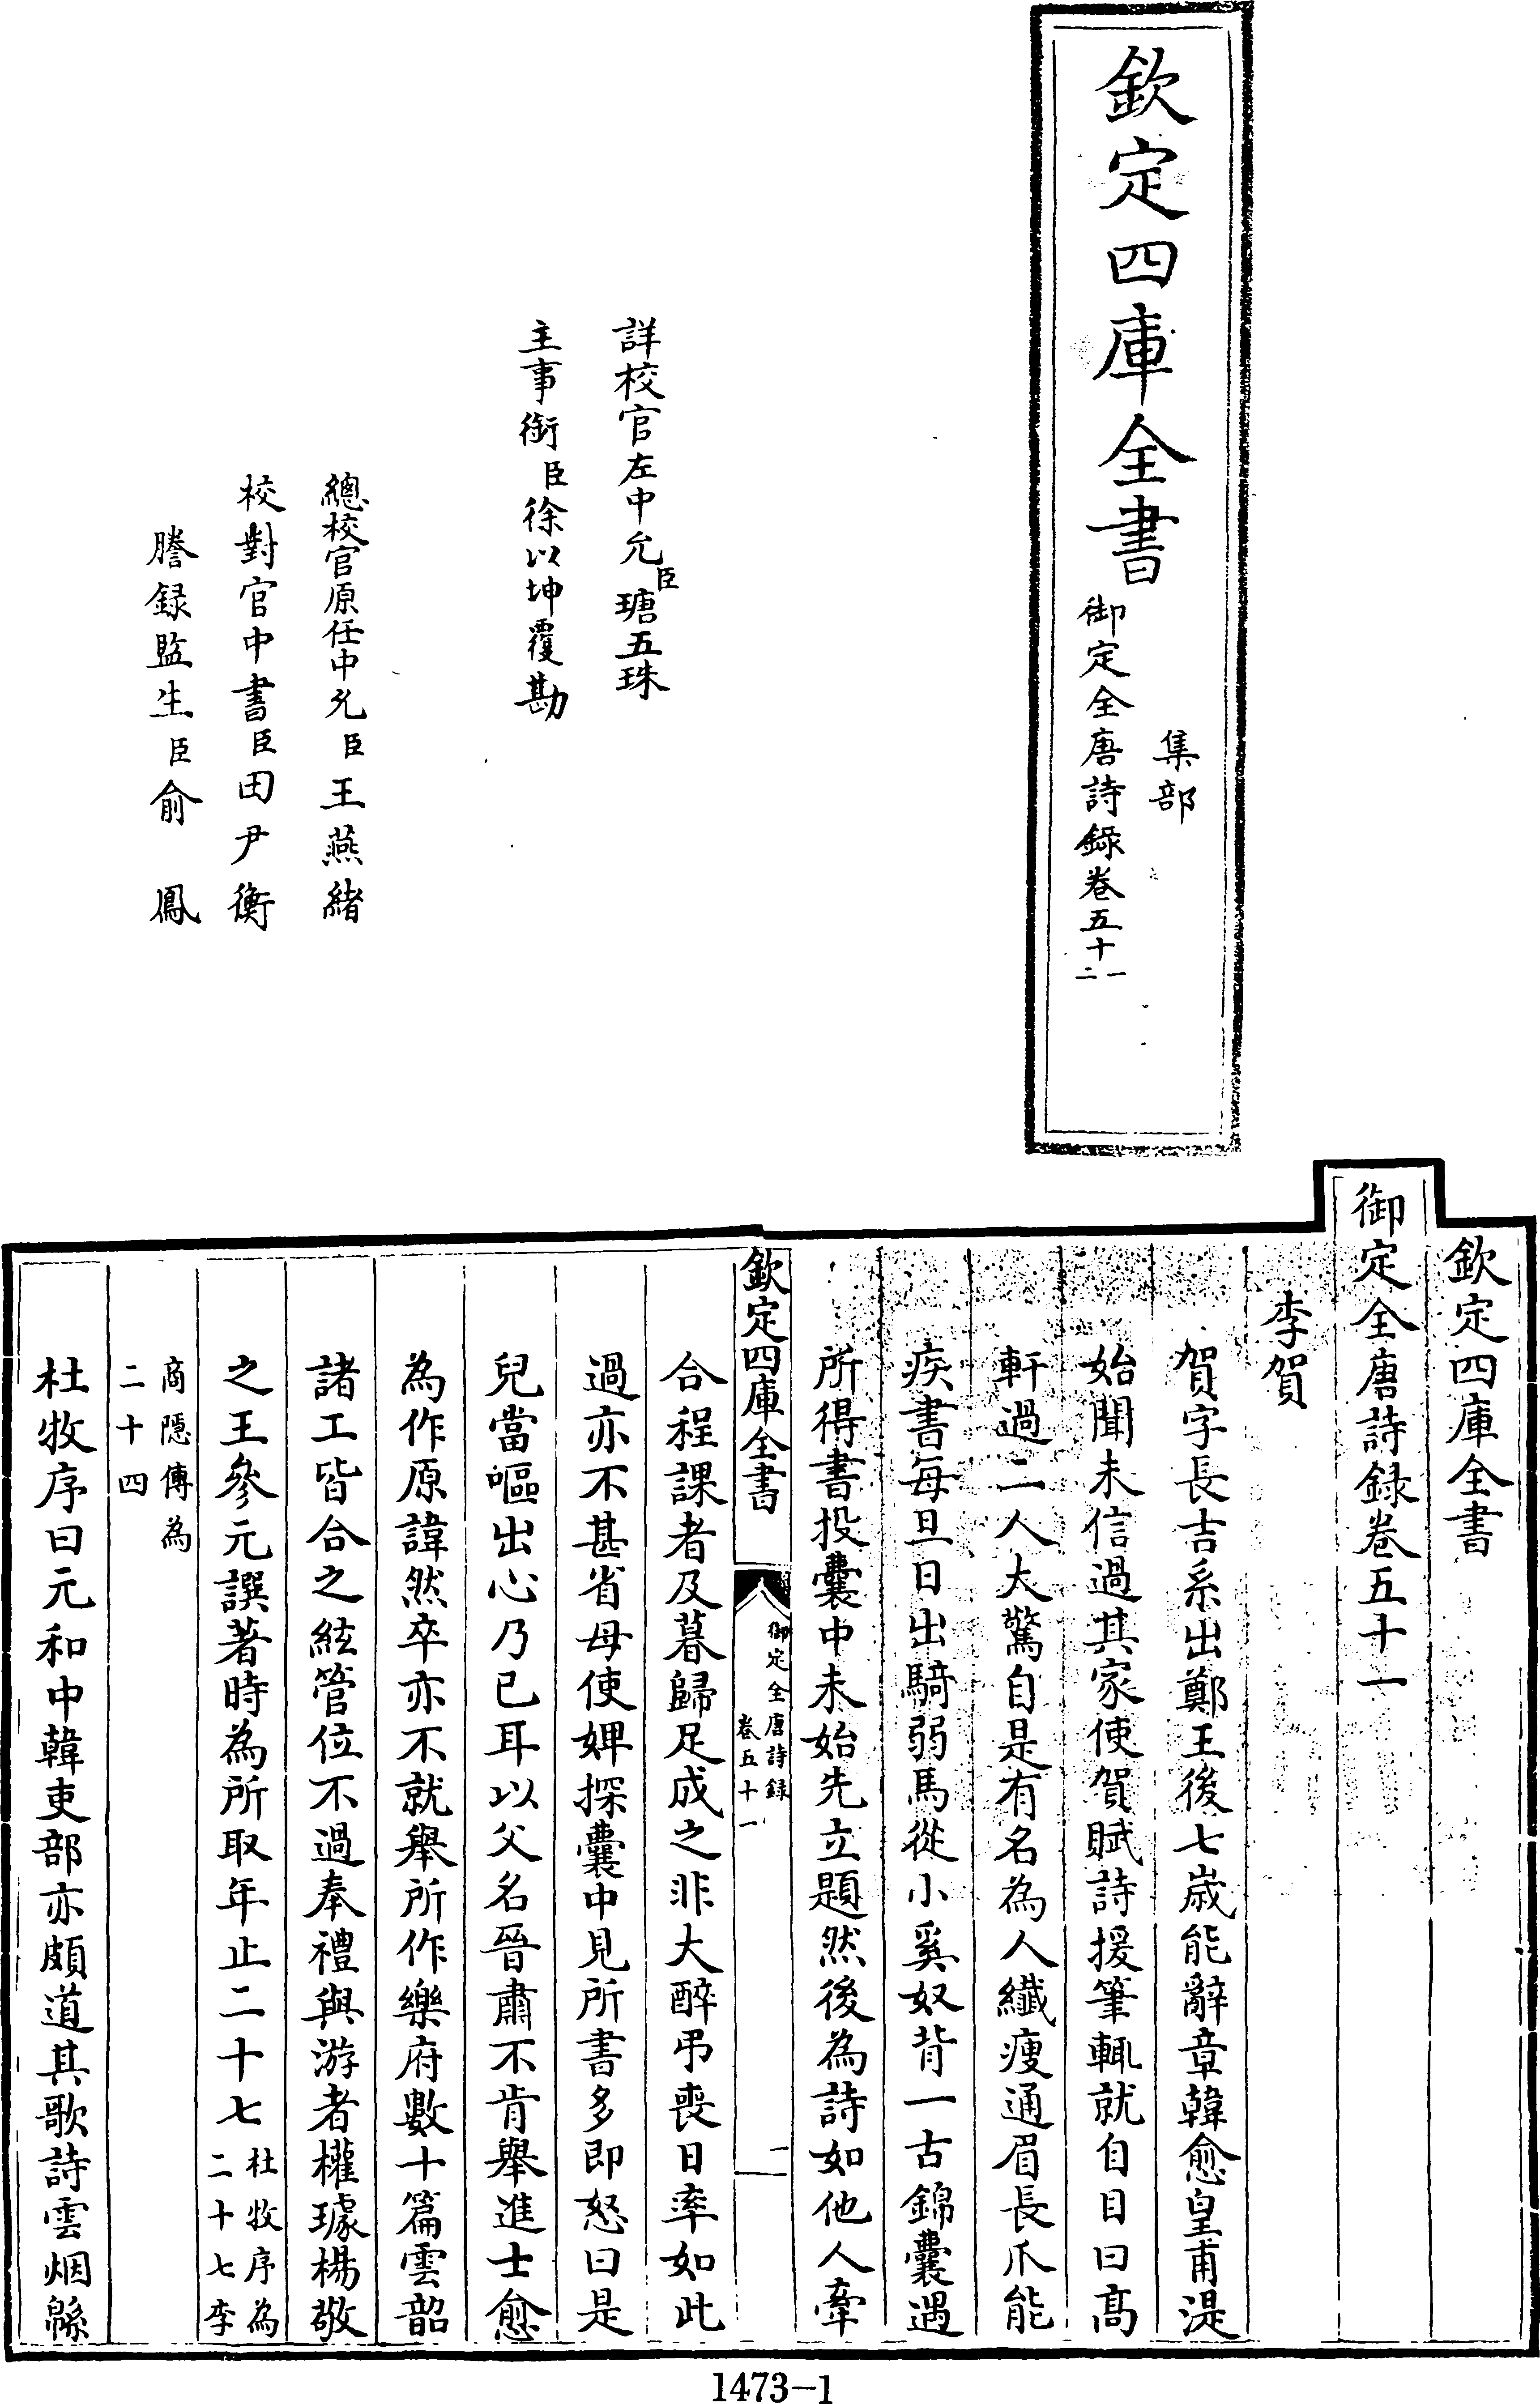 欽定四庫全書
集部
御定全唐詩錄卷五十一二
詳校官左中允臣瑭五珠
主事銜臣徐以坤覆勘
總校官原任中允臣王燕緒
校對官中書臣田尹衡
謄録監生臣俞鳳
欽定四庫全書
御定全唐詩録卷五十一
李賀
賀字長吉系出鄭王後七歲能辭章韓愈皇甫湜
始聞未信過其家使賀賦詩援筆輒就自目曰高
軒過二人大驚自是有名為人纖瘦通眉長爪能
疾書每旦日出騎弱馬從小奚奴背一古錦囊遇
所得書投囊中未始先立題然後為詩如他人牽
欽定四庫全書
御定全唐詩録
卷五十一
一
合程課者及暮歸足成之非大醉弔喪日率如此
過亦不甚省母使婢探囊中見所書多即怒曰是
兒當嘔出心乃已耳以父名晉肅不肯舉進士愈
為作原諱然卒亦不就舉所作樂府數十篇雲韶
諸工皆合之絃管位不過奉禮與游者權璩楊敬
之王參元譔著時為所取年止二十七杜牧序為
二十七李
商隱傳為
二十四
杜牧序曰元和中韓吏部亦頗道其歌詩雲烟緜
1473-1